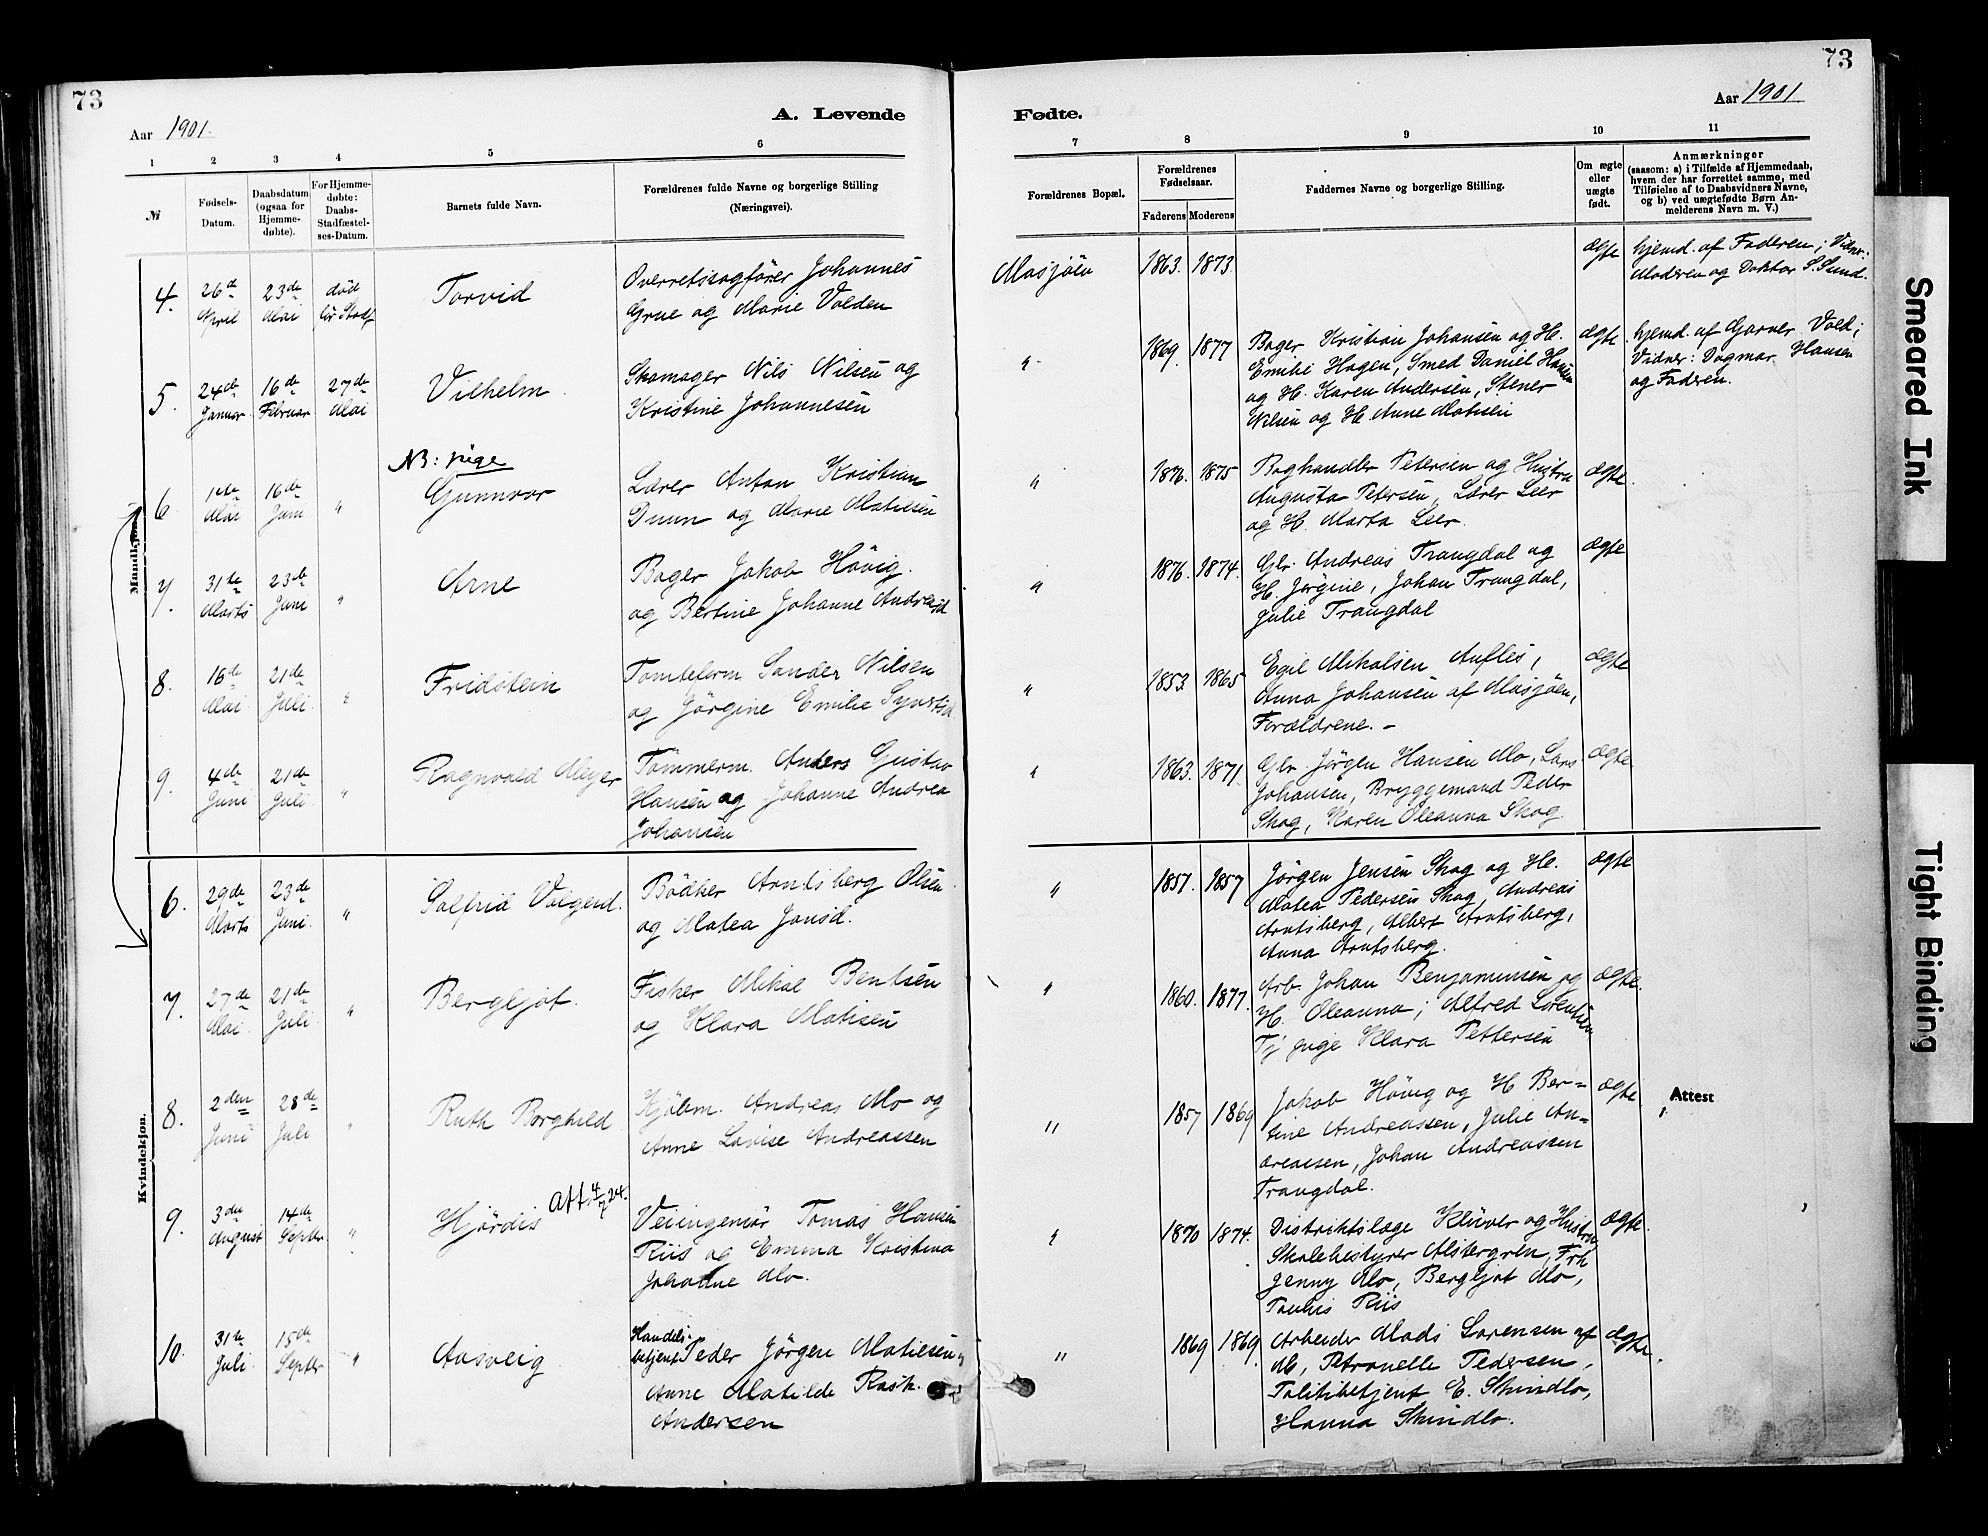 73
Aar 1901.
A. Levende
1 2 3 4 5 6
№
Fødsels-
Datum.
Daabsdatum
(ogsaa for
Hjemme-
døbte).
For Hjemme-
døbte:
Daabs-
Stadfæstel-
ses-Datum.
Barnets fulde Navn.
Forældrenes fulde Navne og borgerlige Stilling
(Næringsvei).
Mandkjøn.
4. 26de April 23de Mai død før Stadf
Torvid
Overretssagfører Johannes
Grue og Marie Volden
5. 24de Januar 16de Februar 27de Mai
Vilhelm.
Skomager Nils Nilsen og
Kristine Johannesen
NB: pige
6. 1ste Mai 16de Juni "
Gunnvor
Lærer Anton Kristian
Duun og Marie Matiesen
7. 31te Marts 23de Juni "
Arne
Bager Jakob Høvig.
og Bertine Johanne Andreasd
8. 16de Mai 21de Juli "
Fridstein
Tomtelerm. Sander Nilsen
og Jørgine Emilie
9. 4de Juni 21de Juli "
Ragnvald Meyer
Tømmerm. Anders Gustav
Hansen og Johanne Andrea
Johansen
Kvindekjøn.
6. 29de Marts 23de Juni "
Solfrid Valgerd.
Bødker Arntsberg Olsen
og Matea Jonsd.
7. 27de Mai 21de Juli "
Bergljot.
Fisker Mikal Bentsen
og Klara Matisen
8. 2den Juni 28de Juli "
Ruth Borghild
Kjøbm. Andreas Mo og
Anne Lovise Andreassen
9. 3die August 14de Septbr "
Hjørdis Att. 4/7 24.
Veiingeniør Tomas Hansen
Riis og Emma Kristina
Johanne Mo.
10. 31te Juli 15de Septbr "
Aasveig
Handels-
betjent Peder Jørgen Matiesen og
Anne Matilde Rask.
Andersen
73
Aar 1901
Fødte.
7 8 9 10 11
Forældrenes Bopæl.
Forældrenes
Fødselsaar.
Faderens Moderens
Faddernes Navne og borgerlige Stilling.
Om ægte
eller
uægte
født.
Anmærkninger
(saasom: a) i Tilfælde af Hjemmedaab,
hvem der har forrettet samme, med
Tilføielse af to Daabsvidners Navne,
og b) ved uægtefødte Børn An-
melderens Navn m. V.)
Mosjøen 1863. 1873. ægte
hjemd. af Faderen; Vidner:
Moderen og Doktor S. Sund.
" 1869. 1877
Bager Kristian Johansen og H.
Emilie Hagen, Smed Daniel Hansen
og H. Karen Andersen, Stener
Nilsen og H. Anne Matisen
ægte
hjemd. af Garver Vold;
Vidner: Dagmar Hansen
og Faderen.
" 1876. 1875
Boghandler Petersen og Hustru
Augusta Petersen, Lærer Leer
og H. Marta Leer.
ægte.
" 1876. 1874.
Glr. Andreas Trangdal og
H. Jørgine, Johan Trangdal,
Julie Trangdal
ægte
" 1853. 1865
Egil Mikalsen Aufles,
Anna Johansen af Mosjøen,
Forældrene. –
ægte
" 1863. 1871.
Glr. Jørgen Hansen Mo, Lars
Johansen, Bryggemand Peder
Skog, Karen Oleanna Skog.
ægte
" 1857. 1857
Jørgen Jensen Skog og H.
Matea Pedersen Skog, Andreas
Arntsberg, Albert Arntsberg,
Anna Arntsberg.
ægte
" 1860. 1877.
Arb. Johan Benjaminsen og
H. Oleanna; Alfred Lorentsen
Tj. pige Klara Pettersen
ægte.
" 1857 1869
Jakob Høvig og H Ber=
tine Andreassen, Julie An=
dreassen, Johan Andreassen
Trangdal.
ægte
Attest
" 1870 1874.
Distriktslæge Klüver og Hustru
Skolebestyrer Alstergren, Frk
Jenny Mo, Bergljot Mo,
Riis
ægte.
" 1869 1869
Arbeider Mads Sørensen af
M, Petronelle Pedersen,
Politibetjent E. Skindlo,
Hanna Skindlo.
ægte.
Smeared Ink
Tight Binding